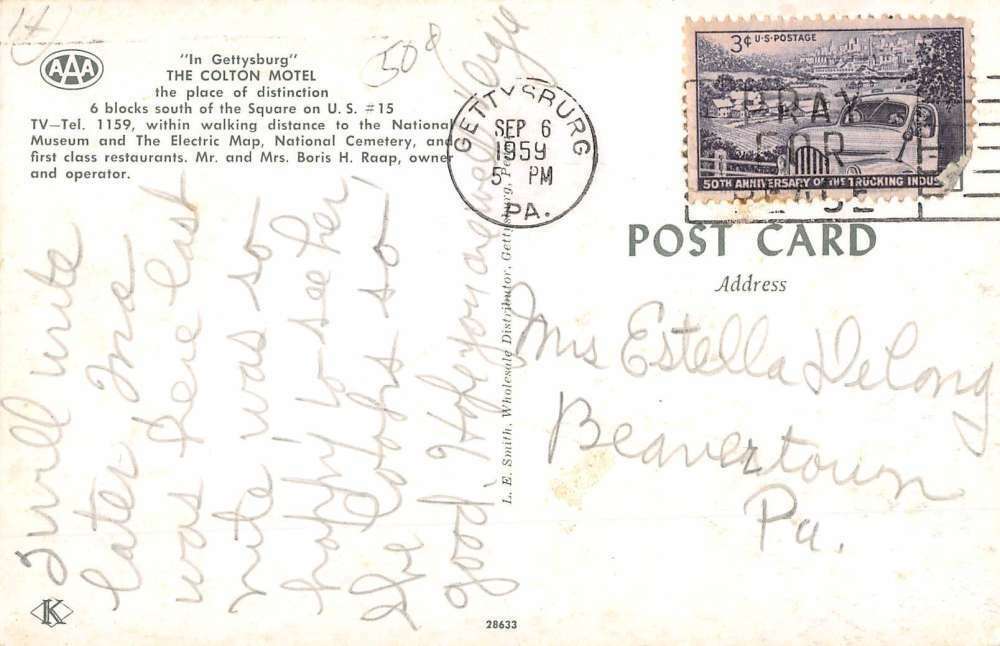 50¢
AAA
"In Gettysburg"
THE COLTON MOTEL
the place of distinction
6 blocks south of the Square on U. S. #15
TV—Tel. 1159, within walking distance to the National
Museum and The Electric Map, National Cemetery, and
first class restaurants. Mr. and Mrs. Boris H. Raap, owner
and operator.
I will write
later Ina
was here last
nite was so
happy to see her
She looks so
good. Hope you are well
GETTYSBURG
SEP 6
1959
5 PM
PA.
3¢ U·S·POSTAGE
50TH ANNIVERSARY OF THE TRUCKING INDUS
PRAY
FOR
PEACE
POST CARD
Address
Mrs Estella DeLong
Beavertown
Pa.
L. E. Smith, Wholesale Distributor, Gettysburg,
K
28633